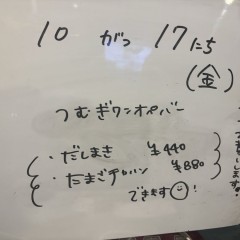 10 がつ 17にち
(金)
つむぎワンオペバー
・だしまき ¥440
・たまごチャハン ¥880
できます!
します!